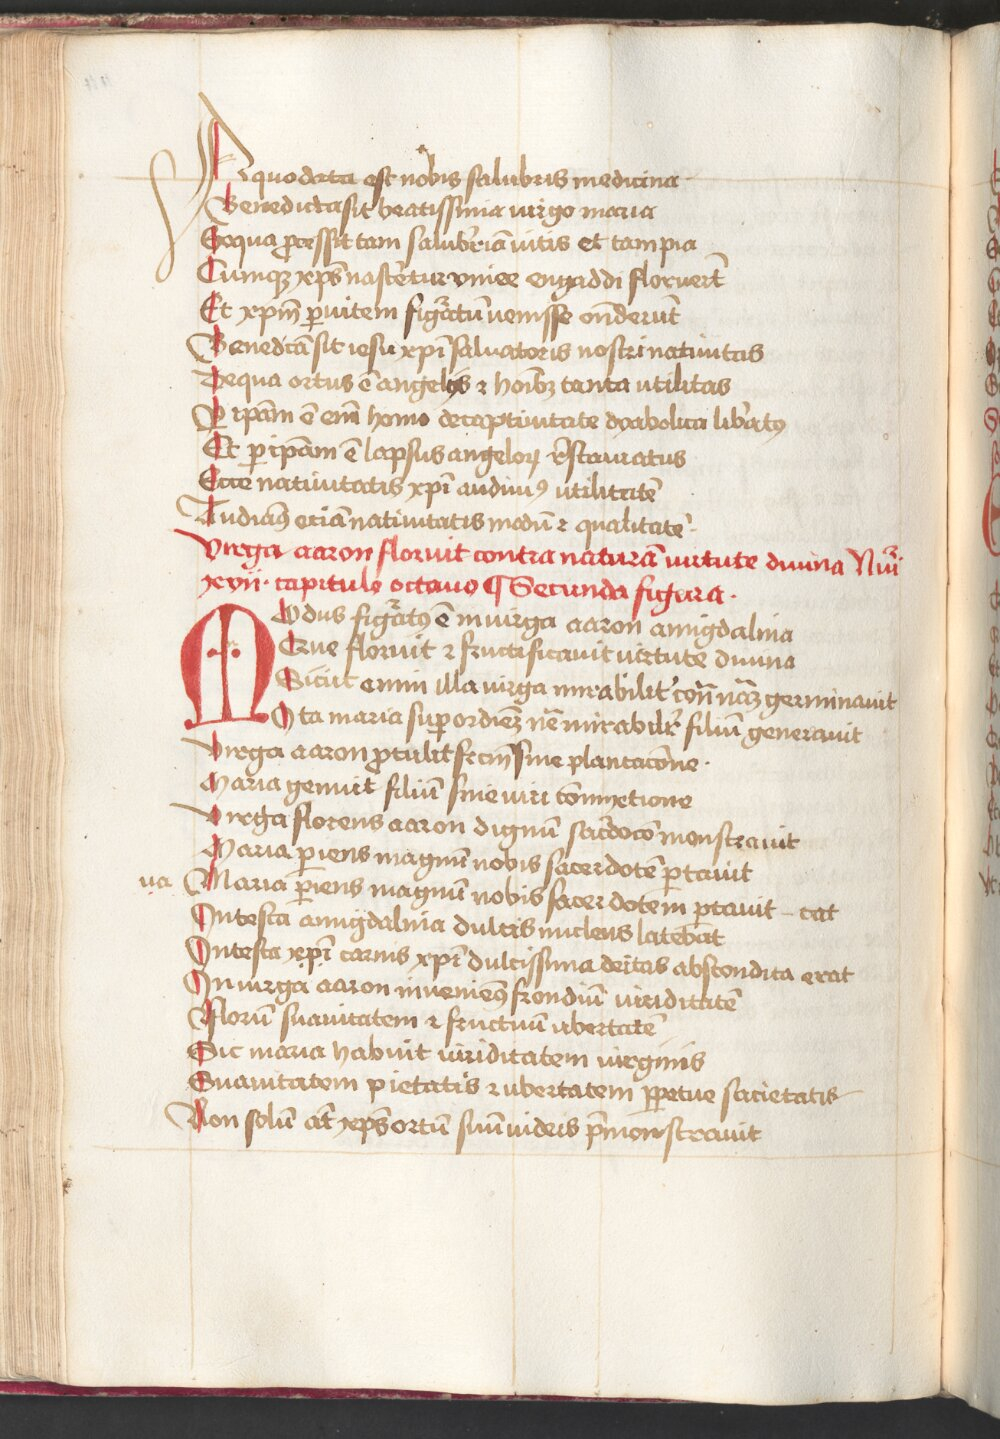 A quo data est nobis salubris medicina
Benedicta sit beatissima virgo maria
Ex qua ꝓcessit tam salubr̄ia vitis et tam pia
Cumqꝫ xp̄s nascēetur vinee engaddi floruerūt
Et xp̄m ꝑ vitem figuratū venisse on̄derūt
Benedc̄a sit iesu xp̄i saluatoris nostri natiuitas
De qua ortus ē angelis ⁊ hoībꝫ tanta vtilitas
Per ip̄am ē em̄ homo de captiuitate dyabolica liberatꝰ
Et ꝑ ip̄am ē lapsus angeloꝝ restauratus
Ecce natiuitatis xp̄i audiuimꝰ vtilitatē
Audiamꝰ eciā natiuitatis modū ⁊ qualitatē·
Virga aaron floruit contra naturā virtute diuina Nūi·
xvii· capitulo octauo ¶ Secunda figura·
Modus figuratꝰ ē in virga aaron amigdalina
Que floruit ⁊ fructificauit virtute diuina
Sicut enim illa virga mirabilit᷑ con̄ nām germinauit
Ita maria suꝑ ordiēꝫ nē mirabilit᷑ filiū generauit
Virga aaron ꝓtulit frcm̄ sine plantacōne·
Maria genuit filiū sine viri conmixtione
Virga florens aaron dignū sac᷑docē monstrauit
Maria pariens magnū nobis sacerdotē portauit
ua Maria ꝑiens magnū nobis sacerdotem portauit – cat
In testa amigdalina dulcis nucleus latebat
In testa xp̄i carnis xp̄i dulcissima deitas abscondita erat
In virga aaron inuenimꝰ frondiū viriditatē
Florū suauitatem ⁊ fructuū vbertatē
Sic maria habuit viriditatem virginis
Suauitatem pietatis ⁊ vbertatem ꝑpetue sacietatis
Non solū at̄ xp̄s ortū suū iudeis p̄monstrauit